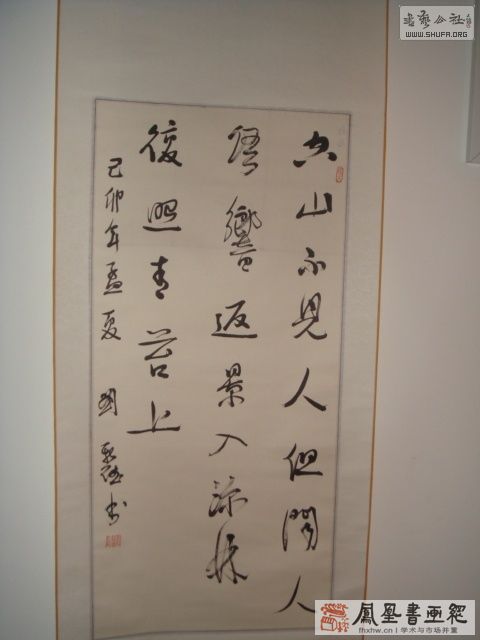 書藝公社
WWW.SHUFA.ORG
空山不見人但聞人
語響返景入深林
復照青苔上
己卯年孟夏 國 书
鳳凰書画網
fhxhw.cn | 学术与市场并重